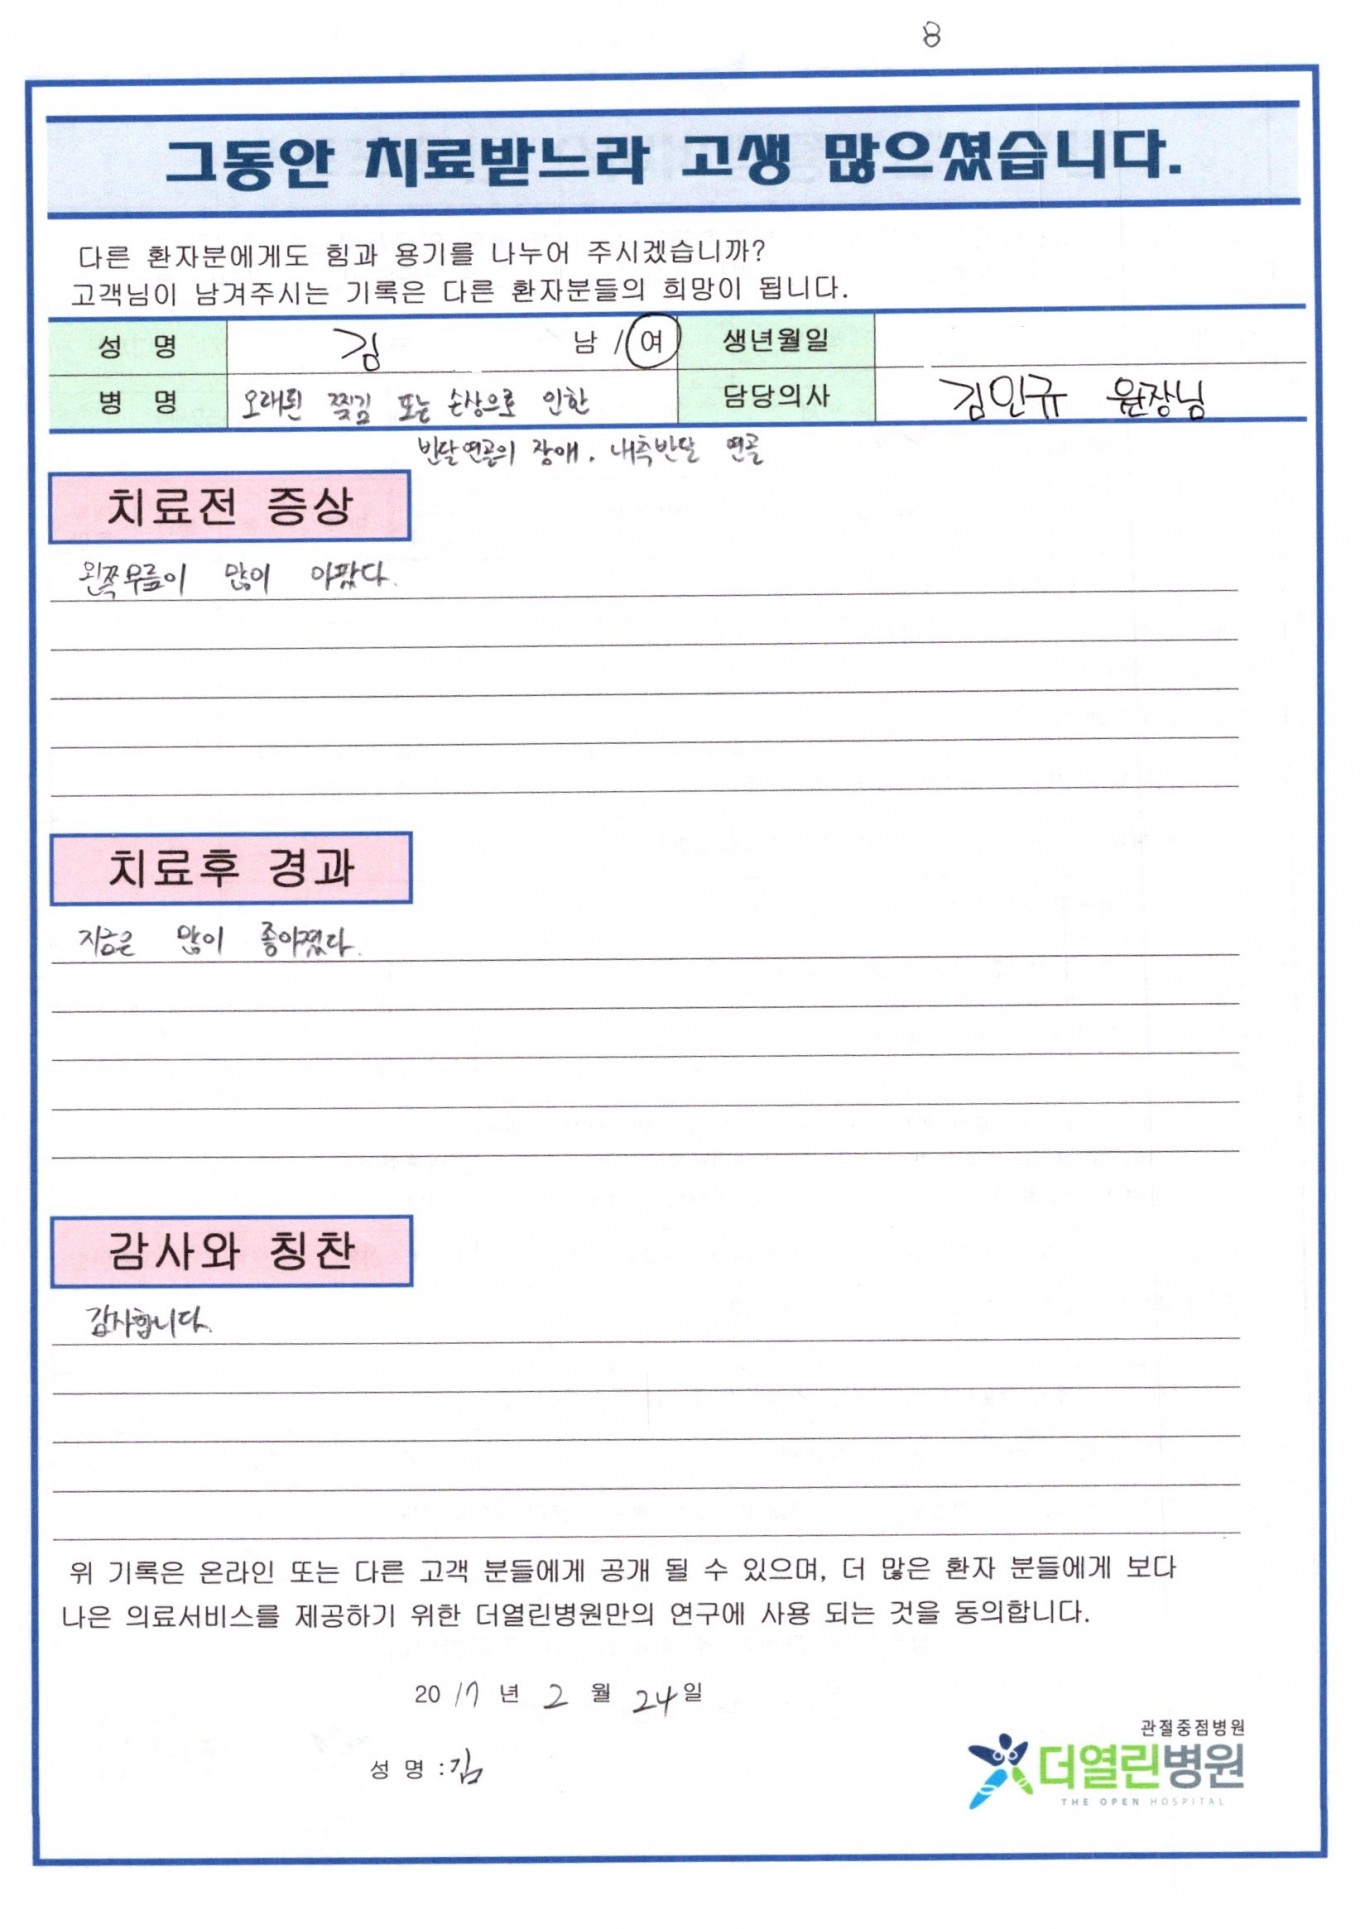 8
그동안 치료받느라 고생 많으셨습니다.
다른 환자분에게도 힘과 용기를 나누어 주시겠습니까?
고객님이 남겨주시는 기록은 다른 환자분들의 희망이 됩니다.
성 명 김 남 / 여 생년월일
병 명 오래된 찢김 또는 손상으로 인한 담당의사 김민규 원장님
반달연골의 장애. 내측반달 연골
치료전 증상
왼쪽무릎이 많이 아팠다.
치료후 경과
지금은 많이 좋아졌다.
감사와 칭찬
감사합니다.
위 기록은 온라인 또는 다른 고객 분들에게 공개 될 수 있으며, 더 많은 환자 분들에게 보다
나은 의료서비스를 제공하기 위한 더열린병원만의 연구에 사용 되는 것을 동의합니다.
2017 년 2 월 24일
성 명 : 김
관절중점병원
더열린병원
THE OPEN HOSPITAL